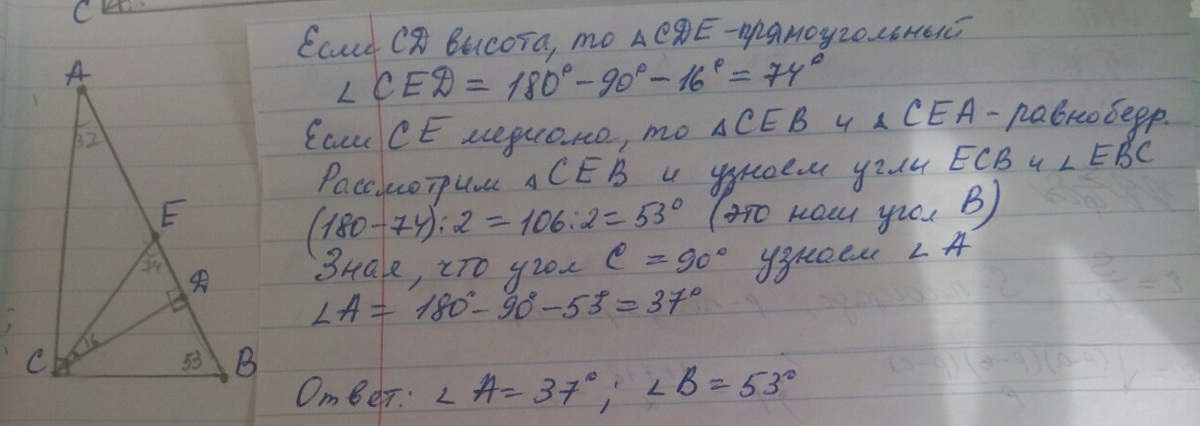 C
Если CD высота, то △CDE - прямоугольный
∠ CED = 180° - 90° - 16° = 74°
Если CE медиана, то △CEB и △ CEA - равнобедр.
Рассмотрим △CEB и узнаем углы ECB и ∠EBC
(180-74):2 = 106:2 = 53° (это наш угол B)
Зная, что угол C = 90° узнаем ∠ A
∠A = 180° - 90° - 53° = 37°
Ответ: ∠ A = 37° ; ∠B = 53°
A
37
E
74
D
C
16
53
B